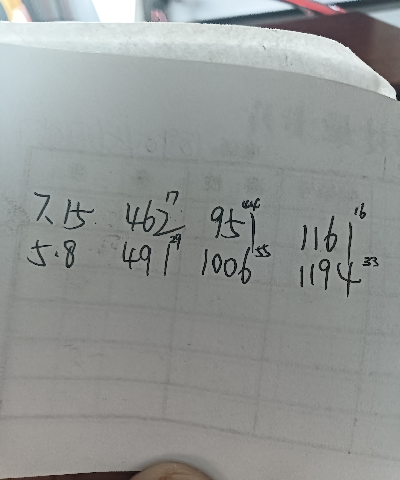 7.15 462 17 951 44 1161 16
5.8 491 29 1006 55 1194 33